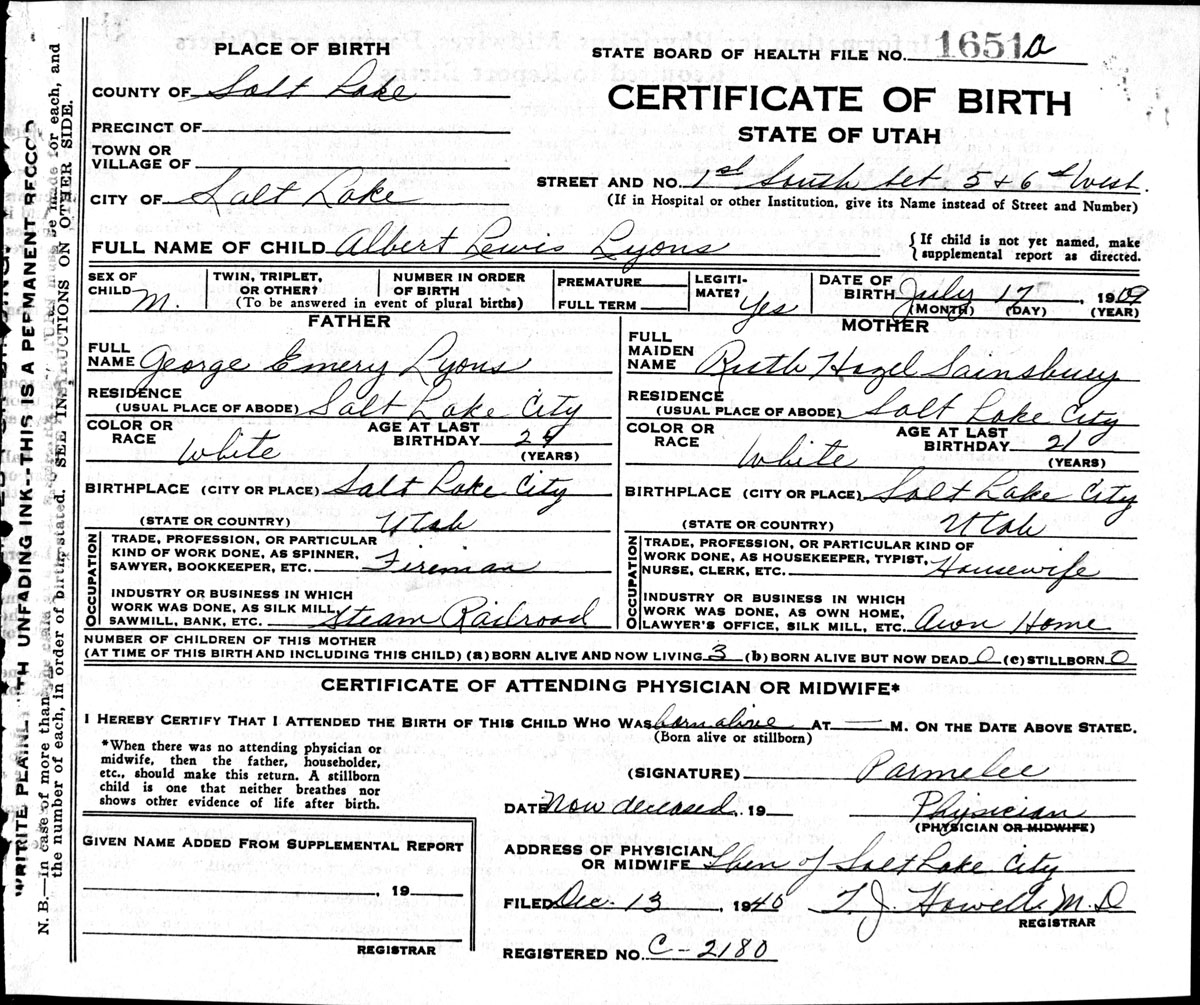 PLACE OF BIRTH
STATE BOARD OF HEALTH FILE NO. 1651a
COUNTY OF Salt Lake
CERTIFICATE OF BIRTH
PRECINCT OF
STATE OF UTAH
TOWN OR
VILLAGE OF
STREET AND NO. 1st South bet 5 & 6th West.
CITY OF Salt Lake
(If in Hospital or other Institution, give its Name instead of Street and Number)
FULL NAME OF CHILD Albert Lewis Lyons
{If child is not yet named, make
supplemental report as directed.
SEX OF
CHILD M.
TWIN, TRIPLET,
OR OTHER?
NUMBER IN ORDER
OF BIRTH
(To be answered in event of plural births)
PREMATURE
FULL TERM
LEGITI-
MATE? Yes
DATE OF
BIRTH July 17, 1909
(MONTH) (DAY) (YEAR)
FATHER
FULL
NAME George Emery Lyons
RESIDENCE
(USUAL PLACE OF ABODE) Salt Lake City
COLOR OR
RACE White
AGE AT LAST
BIRTHDAY 29
(YEARS)
BIRTHPLACE (CITY OR PLACE) Salt Lake City
(STATE OR COUNTRY) Utah
OCCUPATION
TRADE, PROFESSION, OR PARTICULAR
KIND OF WORK DONE, AS SPINNER,
SAWYER, BOOKKEEPER, ETC. Fireman
INDUSTRY OR BUSINESS IN WHICH
WORK WAS DONE, AS SILK MILL,
SAWMILL, BANK, ETC. Steam Railroad
MOTHER
FULL
MAIDEN
NAME Ruth Hazel Sainsbury
RESIDENCE
(USUAL PLACE OF ABODE) Salt Lake City
COLOR OR
RACE White
AGE AT LAST
BIRTHDAY 21
(YEARS)
BIRTHPLACE (CITY OR PLACE) Salt Lake City
(STATE OR COUNTRY) Utah
OCCUPATION
TRADE, PROFESSION, OR PARTICULAR KIND OF
WORK DONE, AS HOUSEKEEPER, TYPIST,
NURSE, CLERK, ETC. Housewife
INDUSTRY OR BUSINESS IN WHICH
WORK WAS DONE, AS OWN HOME,
LAWYER'S OFFICE, SILK MILL, ETC. Own Home
NUMBER OF CHILDREN OF THIS MOTHER
(AT TIME OF THIS BIRTH AND INCLUDING THIS CHILD) (a) BORN ALIVE AND NOW LIVING 3 (b) BORN ALIVE BUT NOW DEAD 0 (c) STILLBORN 0
CERTIFICATE OF ATTENDING PHYSICIAN OR MIDWIFE*
I HEREBY CERTIFY THAT I ATTENDED THE BIRTH OF THIS CHILD WHO WAS born alive AT — M. ON THE DATE ABOVE STATED.
(Born alive or stillborn)
*When there was no attending physician or
midwife, then the father, householder,
etc., should make this return. A stillborn
child is one that neither breathes nor
shows other evidence of life after birth.
(SIGNATURE) Parmelee
DATE Now deceased, 19 Physician
(PHYSICIAN OR MIDWIFE)
ADDRESS OF PHYSICIAN
OR MIDWIFE Then of Salt Lake City
FILED Dec. 13, 1940 T. J. Howells M.D
REGISTRAR
REGISTERED NO. C-2180
GIVEN NAME ADDED FROM SUPPLEMENTAL REPORT
, 19
REGISTRAR
UNFADING INK--THIS IS A PERMANENT RECORD
N. B.—In case of more than
the number of each, in order of birth, stated. SEE INSTRUCTIONS ON OTHER SIDE.